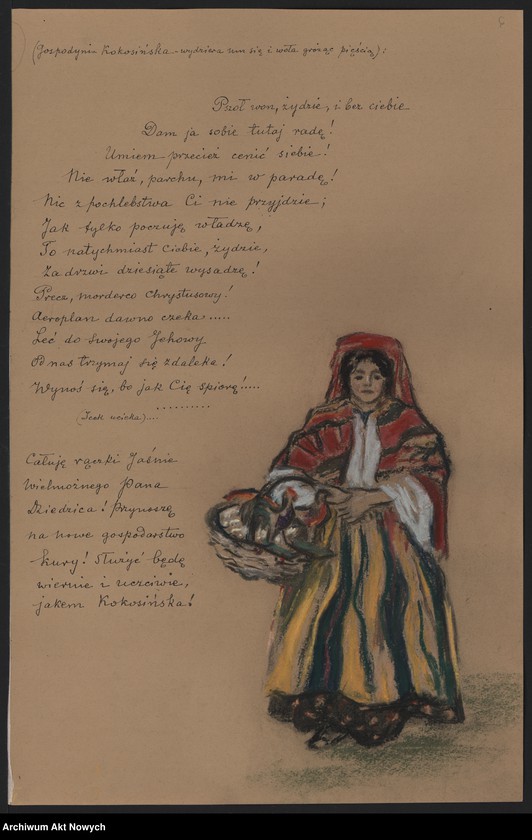 (Gospodyni Kokosińska wydziera mu się i woła grożąc pięścią):
Pszoł won, żydzie, i bez ciebie
Dam ja sobie tutaj radę!
Umiem przecież cenić siebie!
Nie właź, parchu, mi w paradę!
Nic z pochlebstwa Ci nie przyjdzie;
Jak tylko poczuję władzę,
To natychmiast Ciebie, żydzie,
Za drzwi dziesiąte wysadzę!
Precz, morderco Chrystusowy!
Aeroplan dawno czeka.....
Leć do swojego Jehowy
Od nas trzymaj się zdaleka!
Wynoś się, bo jak Cię spiorę!....
..........
(Icek ucieka)....
Całuję rączki Jaśnie
Wielmożnego Pana
Dziedzica! Przynoszę
na nowe gospodarstwo
kury! Służyć będę
wiernie i uczciwie,
jakem Kokosińska!
Archiwum Akt Nowych